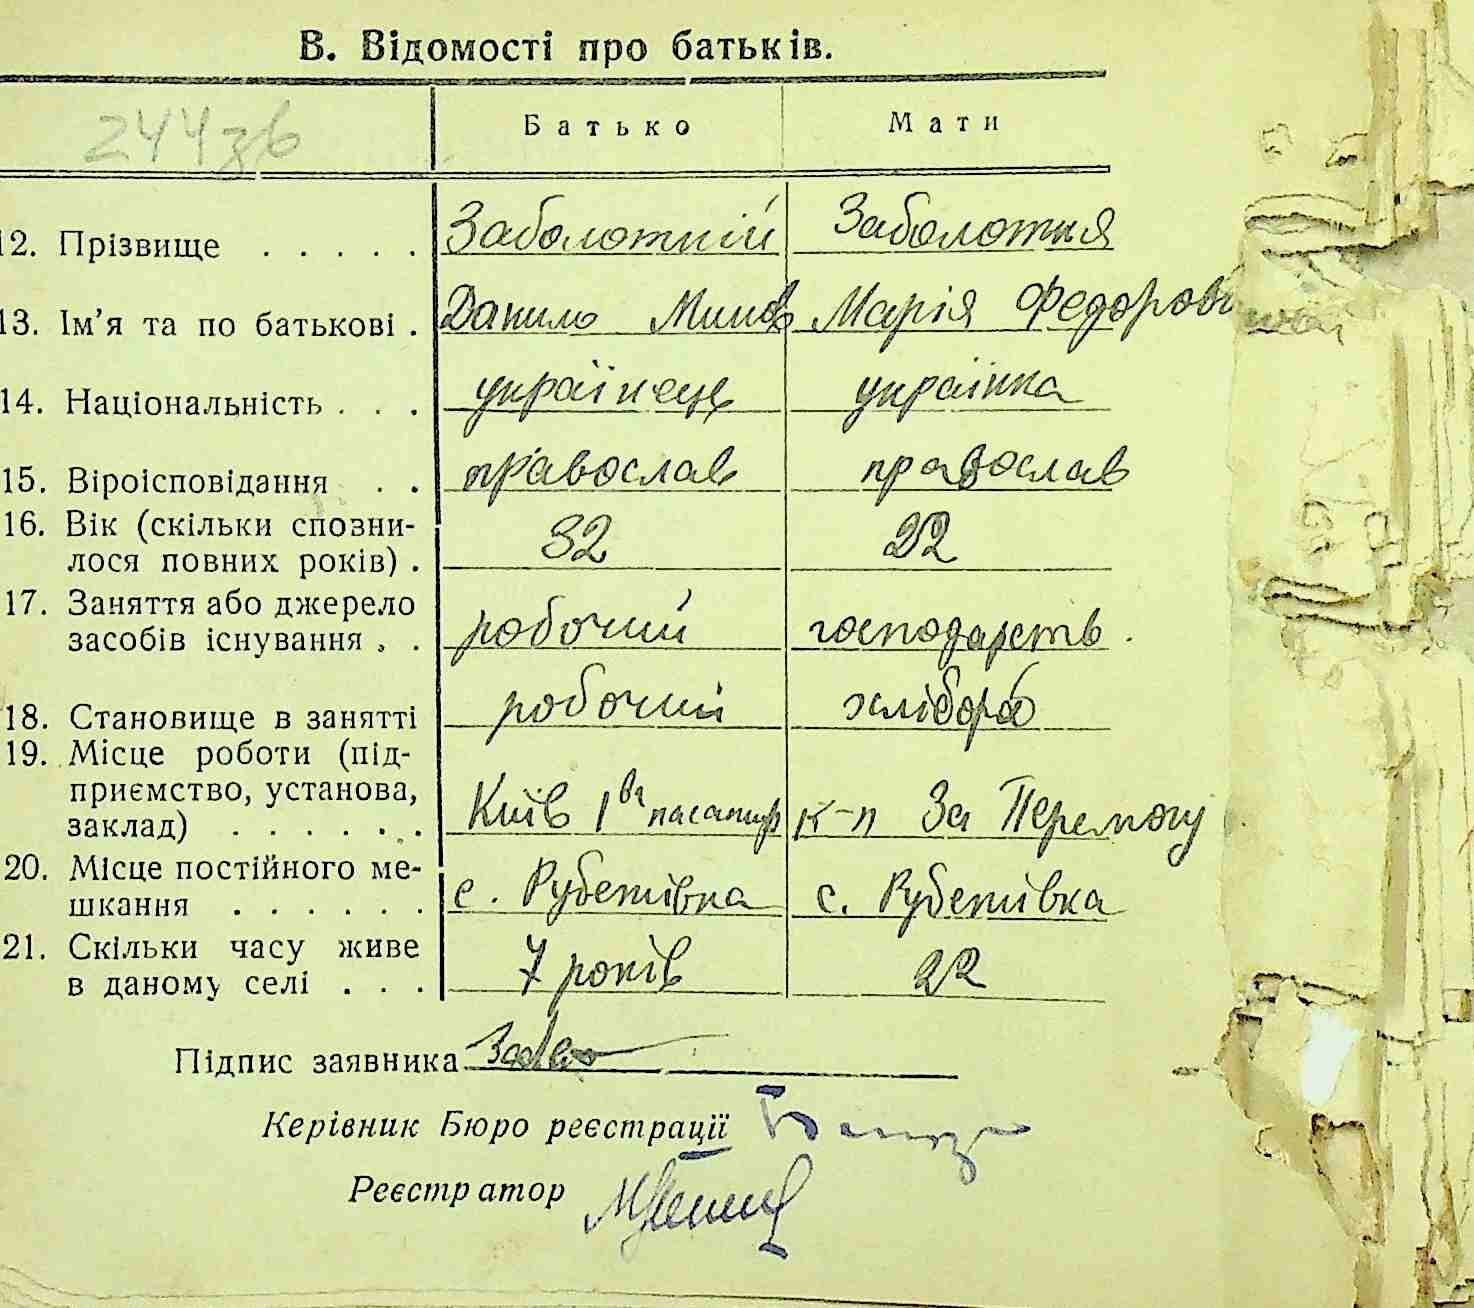 В. Відомості про батьків.
244зв
Батько Мати
12. Прізвище . . . . . Заболотній Заболотня
13. Ім'я та по батькові . Данило Мина Марія Федорові
14. Національність . . . українець українка
15. Віроісповідання . . православ православ
16. Вік (скільки сповни-
лося повних років) . 32 22
17. Заняття або джерело
засобів існування . . робочий господарств.
18. Становище в занятті робочий хлібороб
19. Місце роботи (під-
приємство, установа,
заклад) . . . . . . Київ 1ва к-п За Перемогу
20. Місце постійного ме-
шкання . . . . . . с. Рубежівка с. Рубежівка
21. Скільки часу живе
в даному селі . . . 7 років 22
Підпис заявника
Керівник Бюро реєстрації
Реєстратор